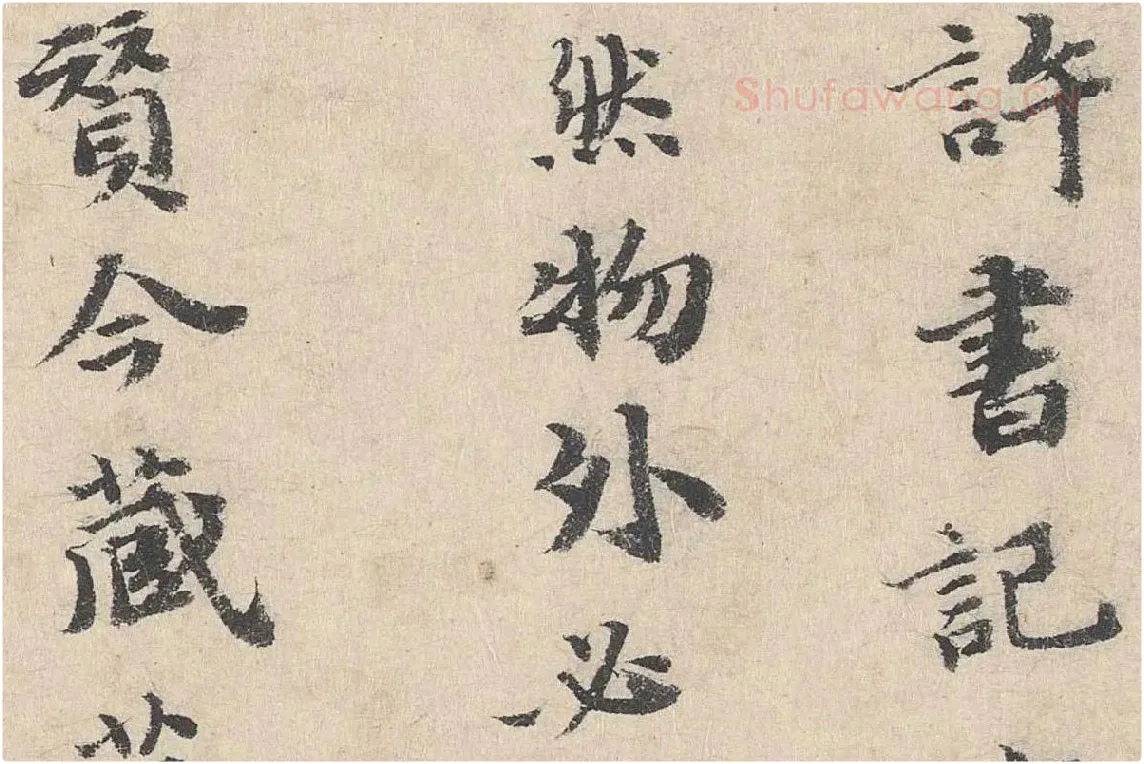 許書記
然物外必
賢今藏
Shufawang.CN